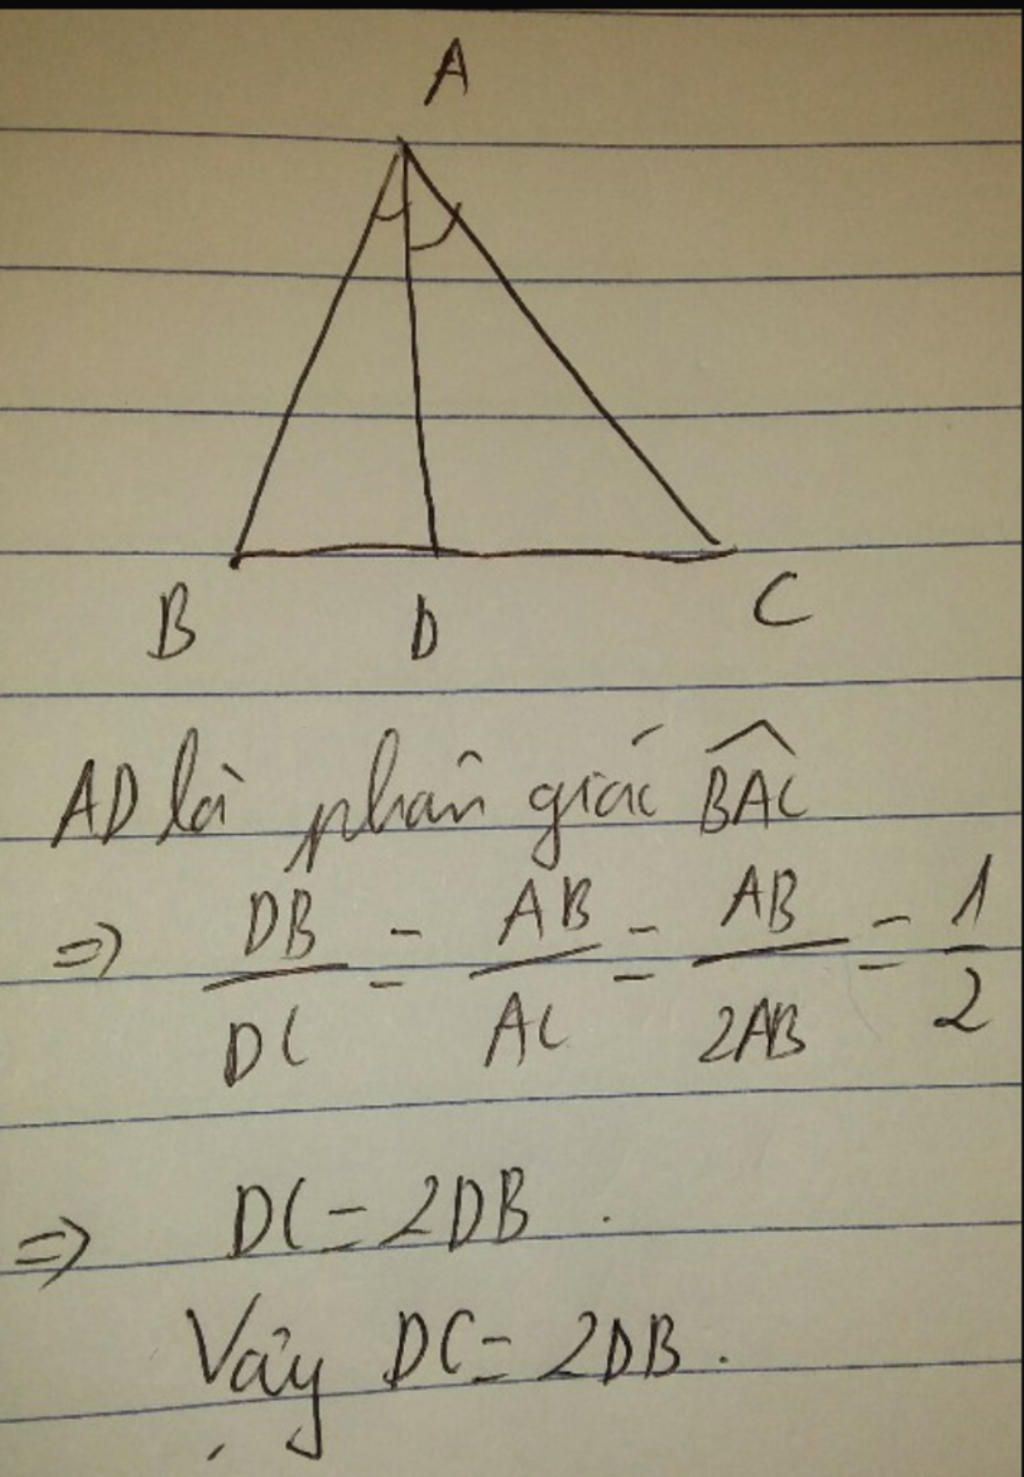 A
B D C
AD là phân giác \widehat{BAC}
=> \frac{DB}{DC} = \frac{AB}{AC} = \frac{AB}{2AB} = \frac{1}{2}
=> DC = 2DB .
Vậy DC = 2DB .